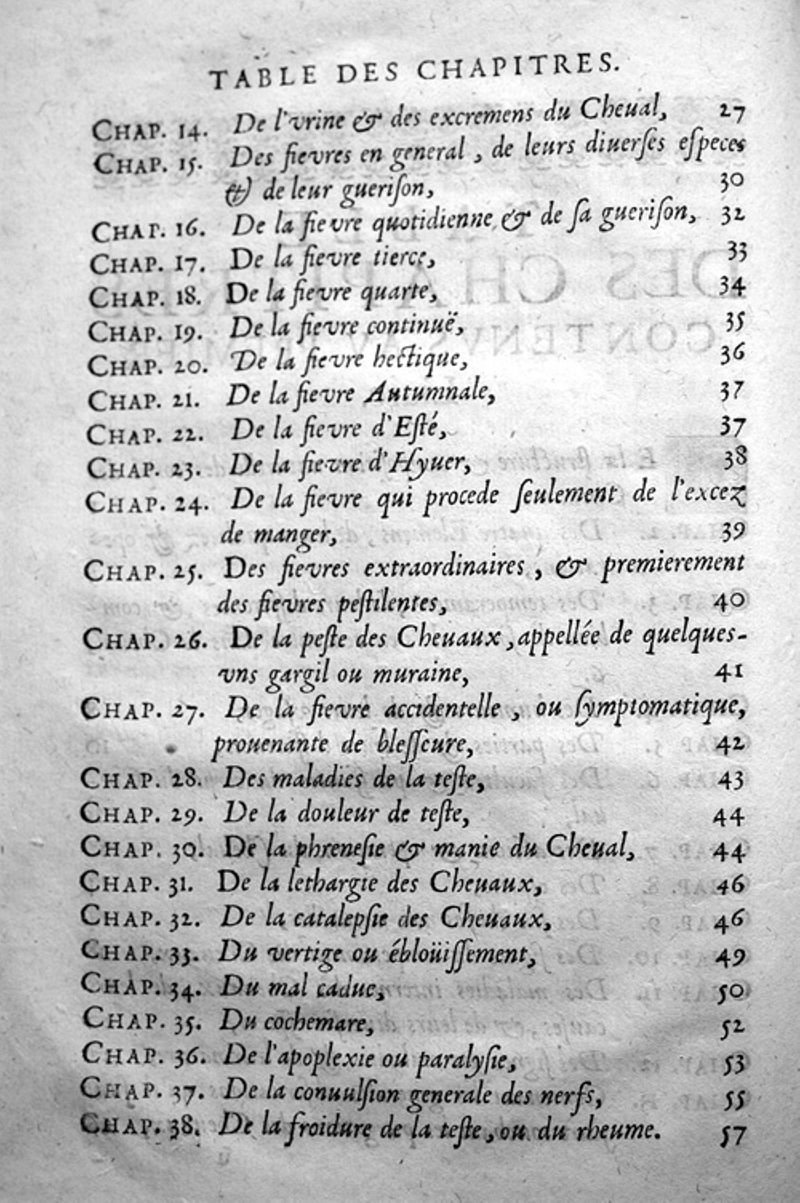 TABLE DES CHAPITRES.
CHAP. 14. De l'vrine & des excremens du Cheual, 27
CHAP. 15. Des fievres en general, de leurs diuerſes eſpeces
& de leur gueriſon, 30
CHAP. 16. De la fievre quotidienne & de ſa gueriſon, 32
CHAP. 17. De la fievre tierce, 33
CHAP. 18. De la fievre quarte, 34
CHAP. 19. De la fievre continuë, 35
CHAP. 20. De la fievre hectique, 36
CHAP. 21. De la fievre Autumnale, 37
CHAP. 22. De la fievre d'Eſté, 37
CHAP. 23. De la fievre d'Hyuer, 38
CHAP. 24. De la fievre qui procede ſeulement de l'excez
de manger, 39
CHAP. 25. Des fievres extraordinaires, & premierement
des fievres peſtilentes, 40
CHAP. 26. De la peſte des Cheuaux, appellée de quelques-
vns gargil ou muraine, 41
CHAP. 27. De la fievre accidentelle, ou ſymptomatique,
prouenante de bleſſeure, 42
CHAP. 28. Des maladies de la teſte, 43
CHAP. 29. De la douleur de teſte, 44
CHAP. 30. De la phreneſie & manie du Cheual, 44
CHAP. 31. De la lethargie des Cheuaux, 46
CHAP. 32. De la catalepſie des Cheuaux, 46
CHAP. 33. Du vertige ou ébloüiſſement, 49
CHAP. 34. Du mal caduc, 50
CHAP. 35. Du cochemare, 52
CHAP. 36. De l'apoplexie ou paralyſie, 53
CHAP. 37. De la conuulſion generale des nerfs, 55
CHAP. 38. De la froidure de la teſte, ou du rheume. 57